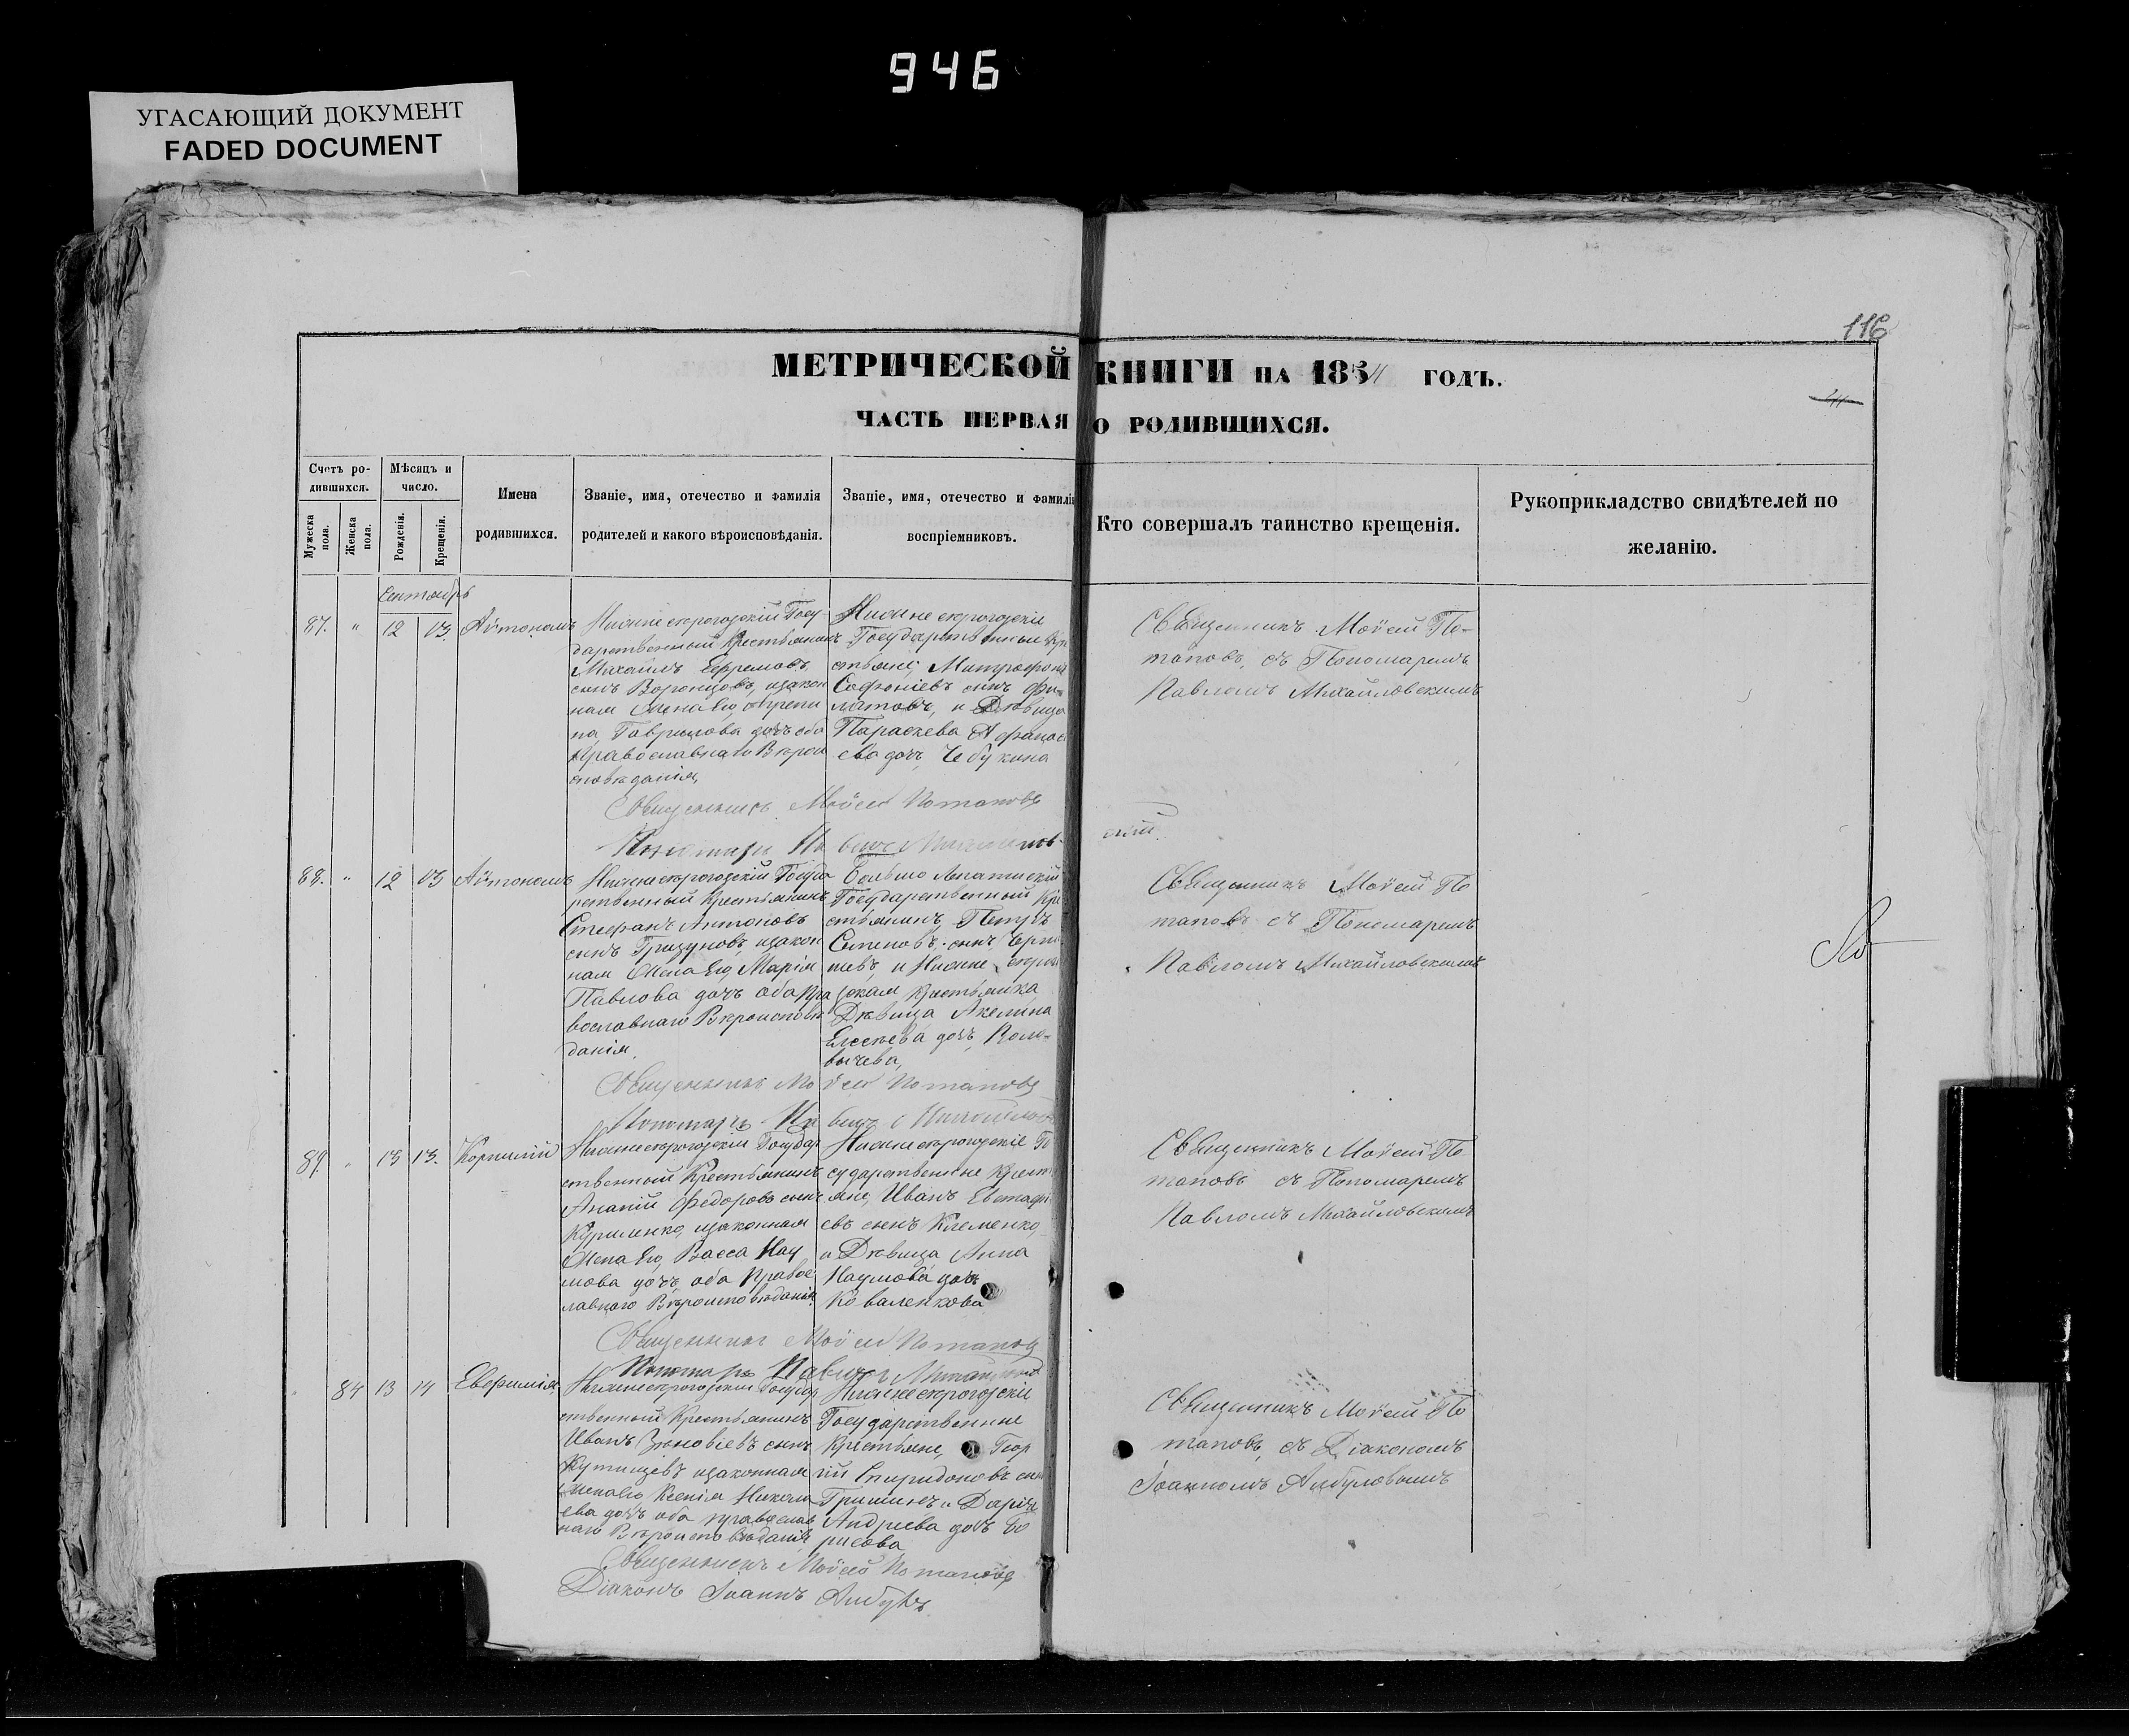 946
УГАСАЮЩИЙ ДОКУМЕНТ
FADED DOCUMENT
116
МЕТРИЧЕСКОЙ КНИГИ НА 1854 ГОДЪ.
ЧАСТЬ ПЕРВАЯ О РОДИВШИХСЯ.
Счетъ ро-
дившихся.
Мужеска пола.
Женска пола.
Мѣсяцъ и
число.
Рожденія.
Крещенія.
Имена
родившихся.
Званіе, имя, отечество и фамилія
родителей и какого вѣроисповѣданія.
Званіе, имя, отечество и фамилія
воспріемниковъ.
Кто совершалъ таинство крещенія.
Рукоприкладство свидѣтелей по
желанію.
Сентябрь
87. " 12 13. Автономъ
Госу-
дарственный Крестьянинъ
Михаилъ Ефремовъ
сынъ Воронцовъ, и закон
ная жена Его,
на Гаврилова дочь оба
Православнаго Вѣрои
сповѣданія,
Государственные Кре
стьяне, Митрофанъ
Софроніевъ сынъ Фи-
латовъ, и Дѣвица
Параскева Афанась
ева дочь Чебукина
Священникъ Моѵсей По-
таповъ, съ Пономаремъ
Павломъ Михайловскимъ
Священникъ Моѵсей Потаповъ
Пономарь Павелъ Михайлов-
скій
88. " 12 13 Автономъ
Госуда
рственный Крестьянинъ
Стефанъ Антоновъ
сынъ Гризуновъ, и закон
ная жена Его, Марія
Павлова дочь оба Пра
вославнаго Вѣроисповѣ
данія.
Государственный Кре
стьянинъ, Петръ
Семеновъ сынъ
Крестьянка
Дѣвица Акелина
Елисѣева дочь,
Священникъ Моѵсей По
таповъ съ Пономаремъ
Павломъ Михайловскимъ
Священникъ Моѵсей Потаповъ
Пономарь Павелъ
89 " 13 13. Корнилій
Государ
ственный Крестьянинъ
Ананій Федоровъ сынъ
Куриленко, и законная
жена Его, Васса Нау
мова дочь, оба Правос
лавнаго Вѣроисповѣданія.
Го
сударственые Кресть
яне, Иванъ Евстафі
евъ сынъ Клеменко,
и Дѣвица Анна
Наумова дочь
Коваленкова
Священникъ Моѵсей По
таповъ съ Пономаремъ
Павломъ Михайловскимъ
Священникъ Моѵсей Потаповъ
Пономарь Павелъ
84 13 14 Евфимія
Государ
ственный Крестьянинъ
Иванъ Зиновіевъ сынъ
и законная
жена его Ксенія Никола
ева дочь оба православ
наго Вѣроисповѣданія
Государственные
Крестьяне, Геор
гій Спиридоновъ сынъ
и Дарія
Андреева дочь Бо
рисова
Священникъ Моѵсей По
таповъ, съ Діакономъ
Іоанномъ
Священникъ Моѵсей Потаповъ
Діаконъ Іоаннъ